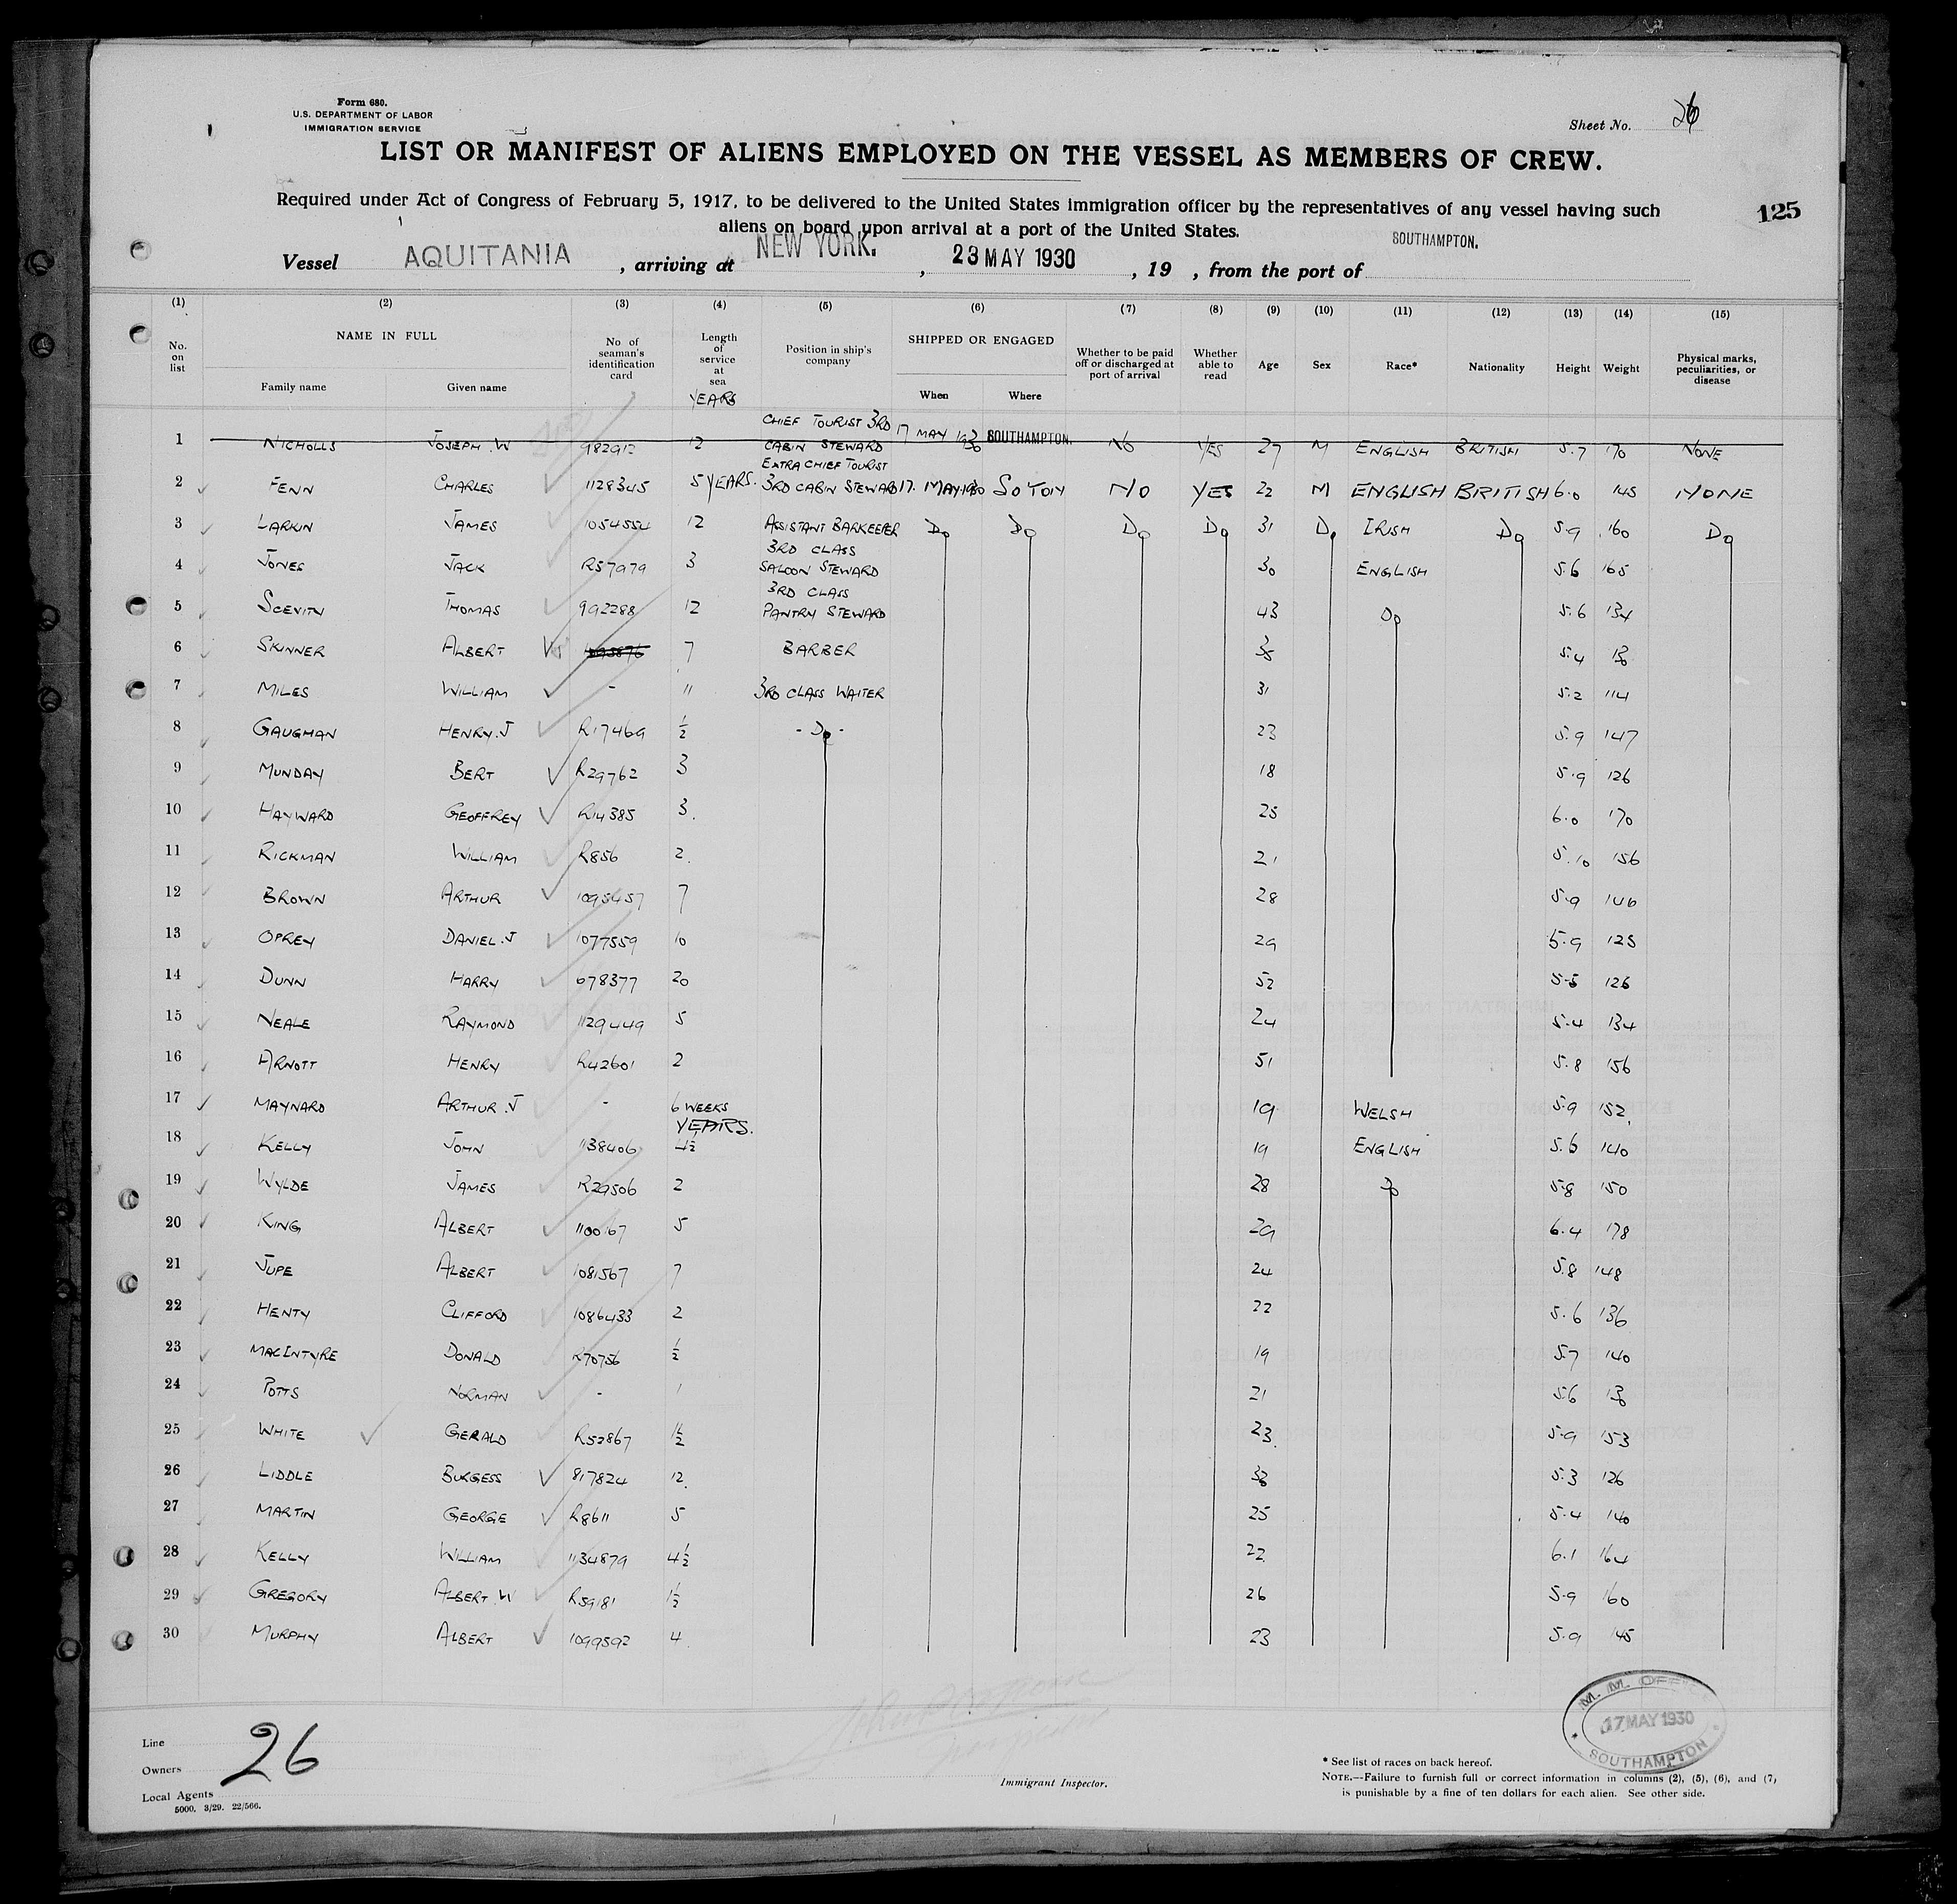 Form 680.
U.S. DEPARTMENT OF LABOR
IMMIGRATION SERVICE
Sheet No. 26
LIST OR MANIFEST OF ALIENS EMPLOYED ON THE VESSEL AS MEMBERS OF CREW.
Required under Act of Congress of February 5, 1917, to be delivered to the United States immigration officer by the representatives of any vessel having such
aliens on board upon arrival at a port of the United States.
125
Vessel AQUITANIA , arriving at NEW YORK. , 23 MAY 1930 , 19 , from the port of SOUTHAMPTON.
(1) (2) (3) (4) (5) (6) (7) (8) (9) (10) (11) (12) (13) (14) (15)
No. on list NAME IN FULL Family name Given name No. of seaman's identification card Length of service at sea YEARS Position in ship's company SHIPPED OR ENGAGED When Where Whether to be paid off or discharged at port of arrival Whether able to read Age Sex Race* Nationality Height Weight Physical marks, peculiarities, or disease
1 NICHOLLS JOSEPH.W 982912 12 CHIEF TOURIST 3RD CABIN STEWARD 17 MAY 1930 SOUTHAMPTON. NO YES 27 M ENGLISH BRITISH 5.7 170 NONE
2 FENN CHARLES 1128345 5 YEARS. EXTRA CHIEF TOURIST 3RD CABIN STEWARD 17. MAY.1930 SO'TON NO YES 22 M ENGLISH BRITISH 6.0 145 NONE
3 LARKIN JAMES 1054554 12 ASSISTANT BARKEEPER Do Do Do Do 31 Do IRISH Do 5.9 160 Do
4 JONES JACK R57979 3 3RD CLASS SALOON STEWARD 30 ENGLISH 5.6 165
5 SCEVITY THOMAS 992288 12 3RD CLASS PANTRY STEWARD 43 Do 5.6 134
6 SKINNER ALBERT 7 BARBER 5.4
7 MILES WILLIAM - 11 3RD CLASS WAITER 31 5.2 114
8 GAUGHAN HENRY.J R17469 ½ - Do - 23 5.9 147
9 MUNDAY BERT R29762 3 18 5.9 126
10 HAYWARD GEOFFREY R14385 3. 25 6.0 170
11 RICKMAN WILLIAM R856 2. 21 5.10 156
12 BROWN ARTHUR 1095457 7 28 5.9 146
13 OPREY DANIEL.J 1077559 10 29 5.9 125
14 DUNN HARRY 678377 20 52 5.5 126
15 NEALE RAYMOND 1129449 5 24 5.4 134
16 ARNOTT HENRY R42601 2 51 5.8 156
17 MAYNARD ARTHUR.J - 6 WEEKS 19 WELSH 5.9 152
18 KELLY JOHN 1138406 YEARS. 4½ 19 ENGLISH 5.6 140
19 WYLDE JAMES R29506 2 28 Do 5.8 150
20 KING ALBERT 1100167 5 29 6.4 178
21 JUPE ALBERT 1081567 7 24 5.8 148
22 HENTY CLIFFORD 1086433 2 22 5.6 136
23 MACINTYRE DONALD R70756 ½ 19 5.7 140
24 POTTS NORMAN - 1 21 5.6
25 WHITE GERALD R52867 1½ 23. 5.9 153
26 LIDDLE BURGESS 817824 12. 38 5.3 126
27 MARTIN GEORGE R8611 5 25 5.4 140
28 KELLY WILLIAM 1134879 4½ 22 6.1 164
29 GREGORY ALBERT.W R59181 1½ 26 5.9 160
30 MURPHY ALBERT 1099592 4 23 5.9 145
M. M. OFFICE
17 MAY 1930
SOUTHAMPTON
Line
Owners 26
Local Agents
5000. 3/29. 22/566.
Immigrant Inspector.
* See list of races on back hereof.
NOTE.—Failure to furnish full or correct information in columns (2), (5), (6), and (7,
is punishable by a fine of ten dollars for each alien. See other side.